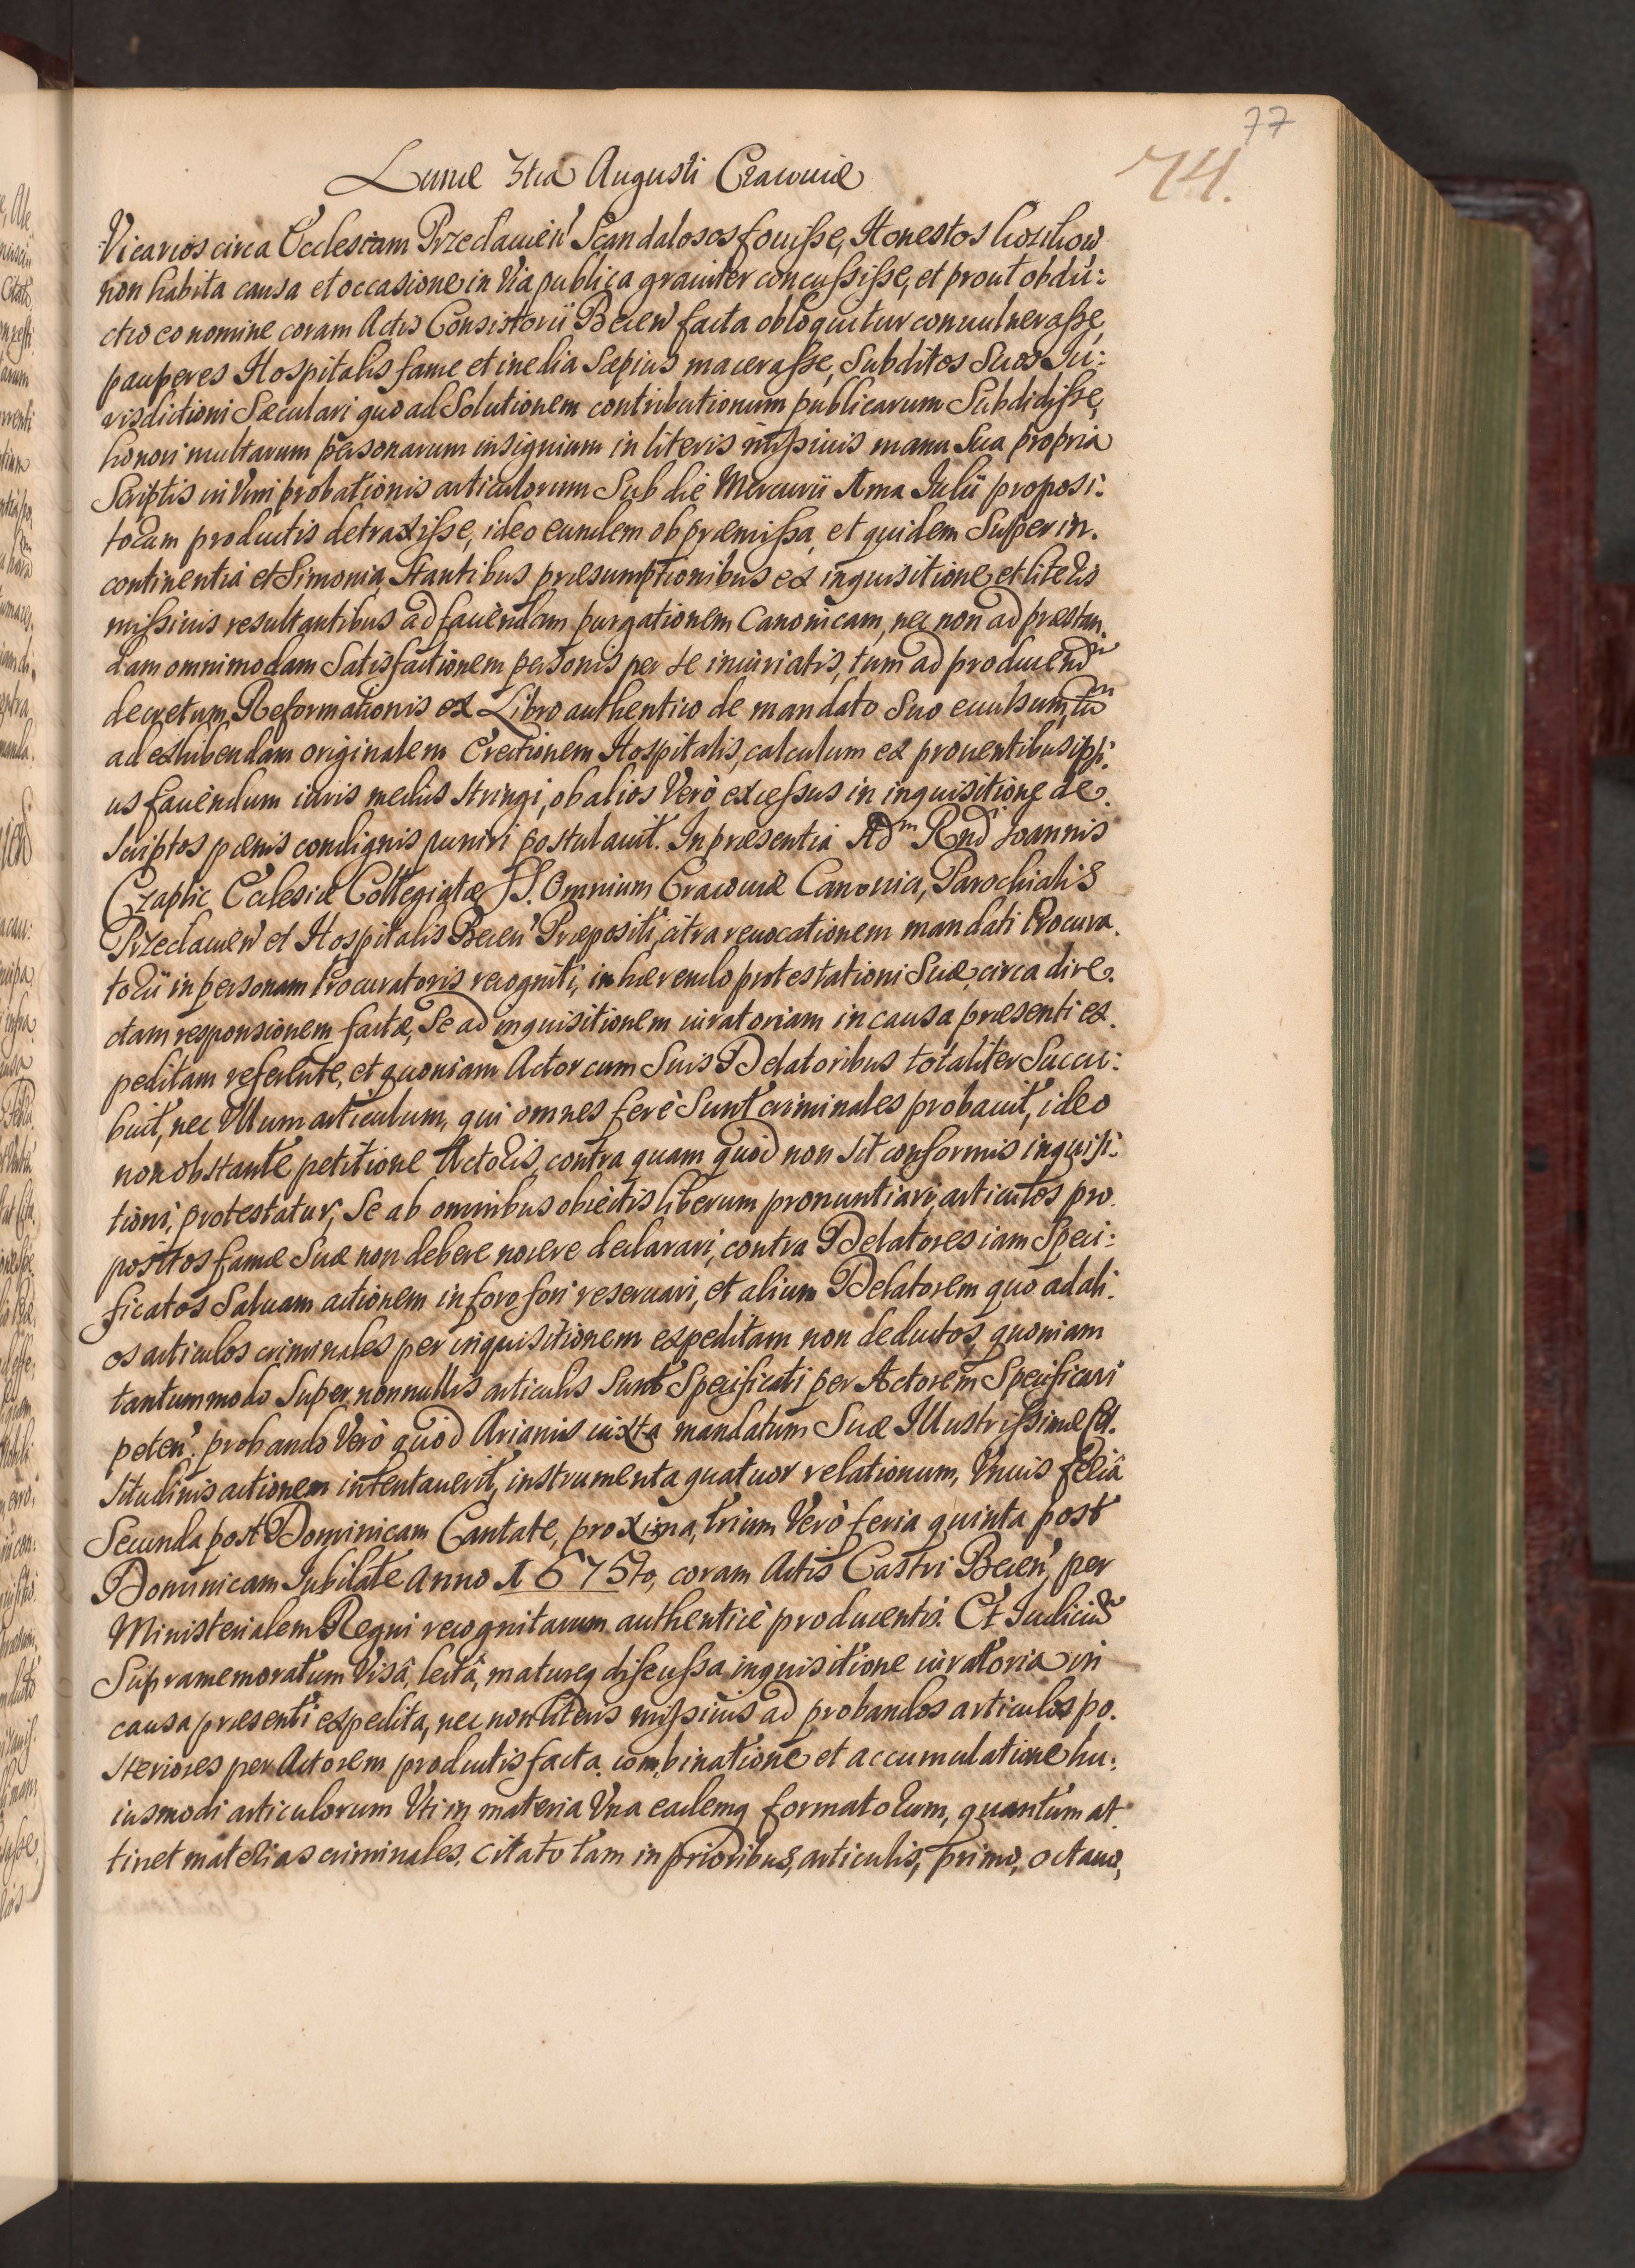 77
74.
Lunæ 3tia Augusti Cracouiæ
Vicarios circa Ecclesiam Przeclauien' Scandalosos fouisse, Honestos
non habita causa et occasione in Via publica grauiter concussisse, et prout obdu:
ctio eo nomine coram Actis Consistorii Becen' facta obloquitur conuulnerasse,
pauperes Hospitalis fame et inedia Sæpius macerasse, Subditos Suos Ju:
risdictioni Sæculari quo ad Solutionem contributionum publicarum Subdidisse,
honori multarum personarum insignium in literis missiuis manu Sua propria
Scriptis in Vim probationis articulorum Sub die Mercurii 1ma Julii proposi:
torum productis detraxisse, ideo eundem ob præmissa, et quidem Super in.
continentia et Simonia, Stantibus præsumptionibus ex inquisitione et literis
missiuis resultantibus ad faciendam purgationem Canonicam, nec non ad præstan.
dam omnimodam Satisfactionem personis per se iniuriatis, tum ad producend
decretum Reformationis ex Libro authentico de mandato Suo euulsum, tu
ad exhibendam originalem Erectionem Hospitalis, calculum ex prouentibus ipsi:
us faciendum iuris mediis Stringi, ob alios Verò excessus in inquisitione de.
scriptos pœnis condignis puniri postulauit. In præsentia Adm Rndi Joannis
Czaplic Ecclesiæ Collegiatæ SS. Omnium Cracouiæ Canonici, Parochialis
Przeclauien' et Hospitalis Becen' Præpositi, citra reuocationem mandati Procura.
torii in personam Procuratoris recogniti, inhærendo protestationi Suæ, circa dire.
ctam responsionem factæ, Se ad inquisitionem iuratoriam in causa præsenti ex.
peditam referente, et quoniam Actor cum Suis Delatoribus totaliter Succu:
buit, nec Vllum articulum, qui omnes ferè Sunt criminales probauit, ideo
non obstante petitione Actoris, contra quam quod non sit conformis inquisi:
tioni, protestatur, Se ab omnibus obiectis liberum pronuntiari, articulos pro.
positos famæ Suæ non debere nocere declarari, contra Delatores iam Speci:
ficatos Saluam actionem in foro fori reseruari, et alium Delatorem quo ad ali.
os articulos criminales per inquisitionem expeditam non deductos, quoniam
tantummodo Super nonnullis articulis Sunt Specificati per Actorem Specificari
peten'. probando Verò quod Arianis iuxta mandatum Suæ Illustrissimæ Cel.
situdinis actionem intentauerit, instrumenta quatuor relationum, Vnius feria
Secunda post Dominicam Cantate, proxima, trium Verò feria quinta post
Dominicam Jubilate Anno 1675to, coram Actis Castri Becen', per
Ministerialem Regni recognitarum authenticè producentis. Et Judiciu
Supramemoratum Visâ, lectâ, matureq discussa inquisitione iuratoria in
causa præsenti expedita, nec non literis missiuis ad probandos articulos po.
steriores per Actorem productis facta combinatione et accumulatione hu:
iusmodi articulorum Vti in materia Vna eademq formatorum, quantum at.
tinet materias criminales. Citato tam in prioribus, articulis, primo, octauo,